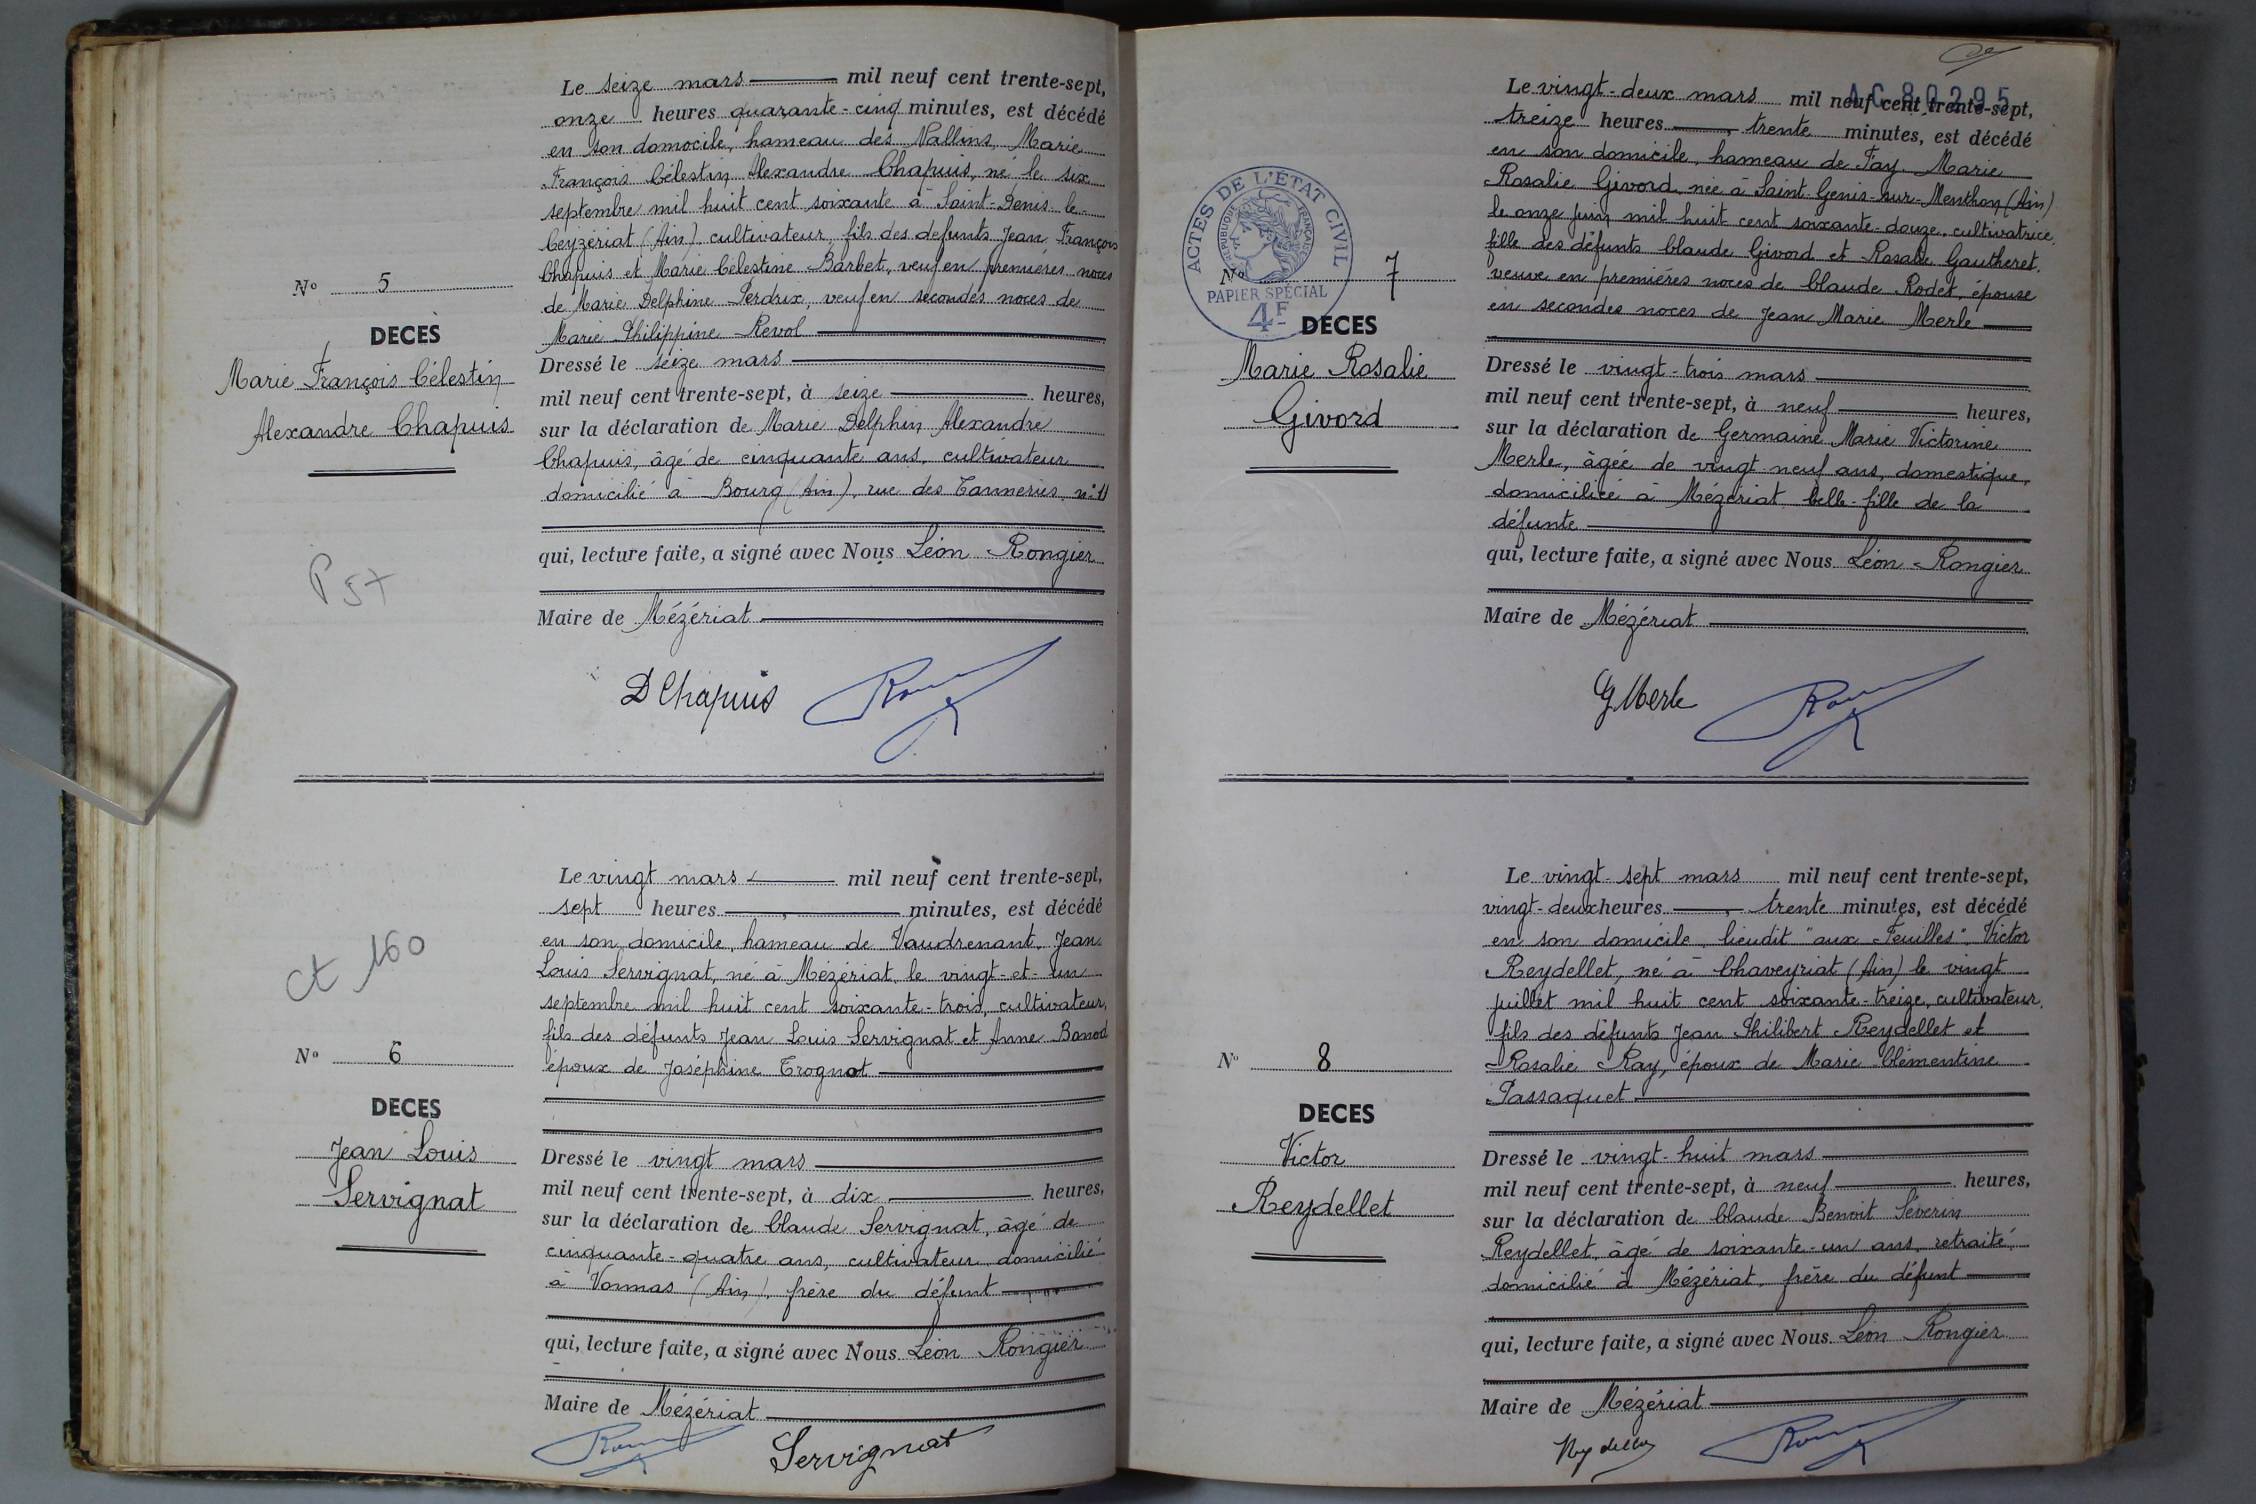 Le seize mars mil neuf cent trente-sept,
onze heures quarante-cinq minutes, est décédé
en son domocile, hameau des Vallins, Marie
François Célestin Alexandre Chapuis, né le six
septembre mil huit cent soixante à Saint-Denis-le-
Ceyzériat (Ain), cultivateur, fils des defunts Jean François
Chapuis et Marie Célestine Barbet, veuf en premières noces
de Marie Delphine Perdrix, veuf en secondes noces de
Marie Philippine Revol
Nº 5
DECES
Marie François Célestin
Alexandre Chapuis
Dressé le seize mars
mil neuf cent trente-sept, à seize heures,
sur la déclaration de Marie Delphin Alexandre
Chapuis, âgé de cinquante ans, cultivateur
domicilié à Bourg (Ain), rue des Tanneries, nº 11
qui, lecture faite, a signé avec Nous Léon Rongier
Maire de Mézériat
P 57
D Chapuis
Le vingt mars mil neuf cent trente-sept,
sept heures minutes, est décédé
en son domicile, hameau de Vaudrenant, Jean
Louis Servignat, né à Mézériat, le vingt-et-un
septembre mil huit cent soixante-trois, cultivateur,
fils des défunts Jean Louis Servignat et Anne Bonod
époux de Joséphine Trognot
ct 160
Nº 6
DECES
Jean Louis
Servignat
Dressé le vingt mars
mil neuf cent trente-sept, à dix heures,
sur la déclaration de Claude Servignat, âgé de
cinquante-quatre ans, cultivateur, domicilié
à Vonnas (Ain), frère du défunt
qui, lecture faite, a signé avec Nous Léon Rongier
Maire de Mézériat
Servignat
AC 80295
Le vingt-deux mars mil neuf cent trente-sept,
treize heures, trente minutes, est décédé
en son domicile, hameau de Fay, Marie
Rosalie Givord, née à Saint-Genis-sur-Menthon (Ain)
le onze juin mil huit cent soixante-douze, cultivatrice,
fille des défunts Claude Givord et Rosalie Gautheret,
veuve en premières noces de Claude Rodet, épouse
en secondes noces de Jean Marie Merle
ACTES DE L'ÉTAT CIVIL
RÉPUBLIQUE FRANÇAISE
PAPIER SPÉCIAL
4F
Nº 7
DECES
Marie Rosalie
Givord
Dressé le vingt-trois mars
mil neuf cent trente-sept, à neuf heures,
sur la déclaration de Germaine Marie Victorine
Merle, âgée de vingt-neuf ans, domestique,
domiciliée à Mézériat, belle-fille de la
défunte
qui, lecture faite, a signé avec Nous Léon Rongier
Maire de Mézériat
G Merle
Le vingt-sept mars mil neuf cent trente-sept,
vingt-deux heures, trente minutes, est décédé
en son domicile, lieudit "aux Feuilles", Victor
Reydellet, né à Chaveyriat (Ain) le vingt
juillet mil huit cent soixante-treize, cultivateur,
fils des défunts Jean Philibert Reydellet et
Rosalie Ray, époux de Marie Clémentine
Passaquet
Nº 8
DECES
Victor
Reydellet
Dressé le vingt-huit mars
mil neuf cent trente-sept, à neuf heures,
sur la déclaration de Claude Benoit Séverin
Reydellet, âgé de soixante-un ans, retraité,
domicilié à Mézériat, frère du défunt
qui, lecture faite, a signé avec Nous Léon Rongier
Maire de Mézériat